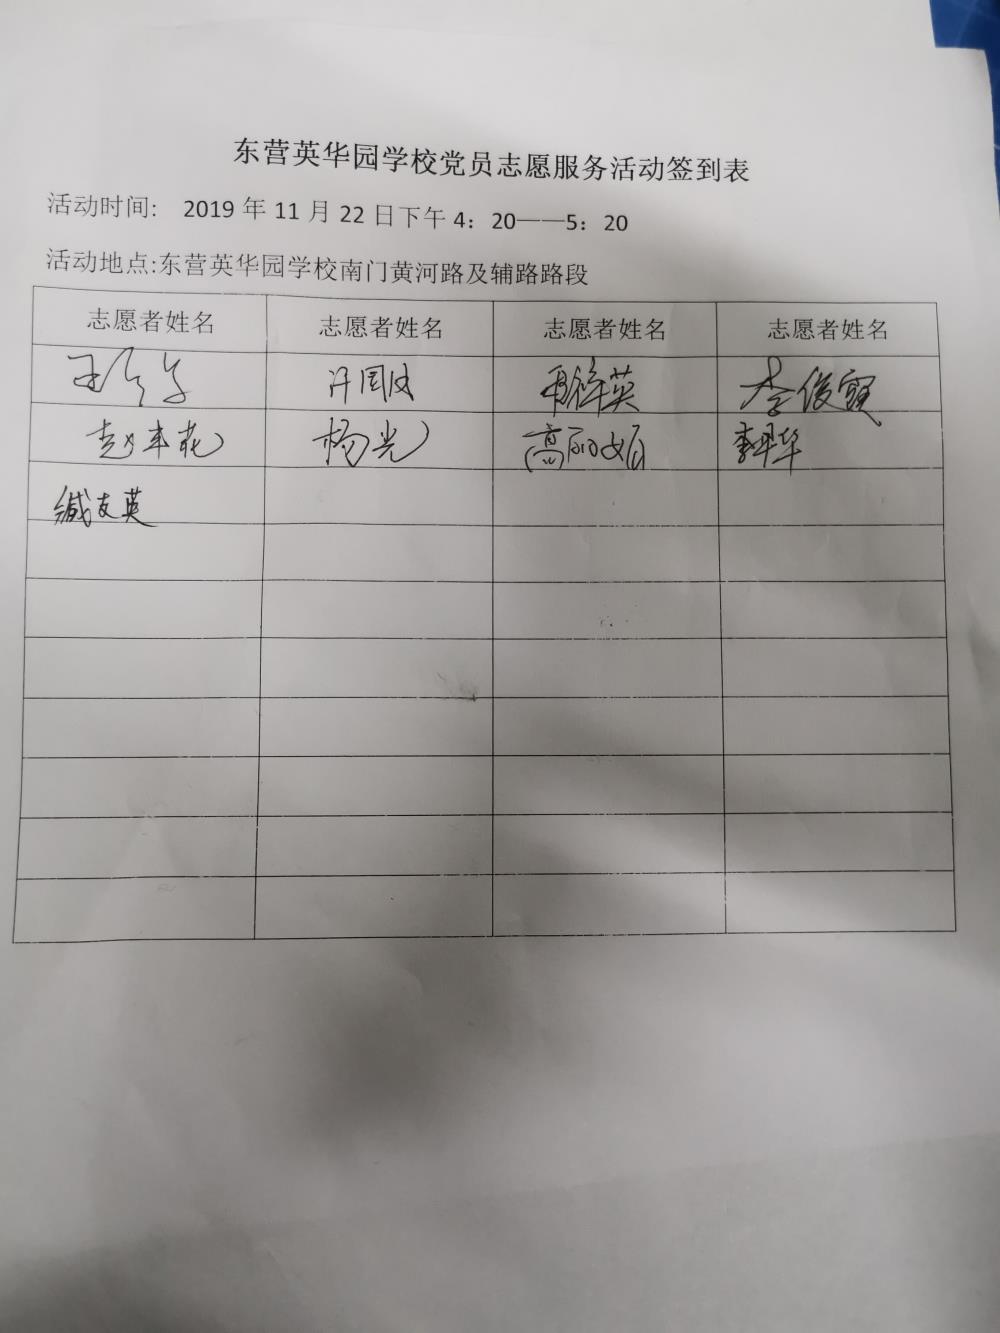 东营英华园学校党员志愿服务活动签到表
活动时间: 2019 年 11 月 22 日下午 4：20——5：20
活动地点:东营英华园学校南门黄河路及辅路路段
志愿者姓名 志愿者姓名 志愿者姓名 志愿者姓名
李俊宝
杨光 高丽娟 李早华
臧友英